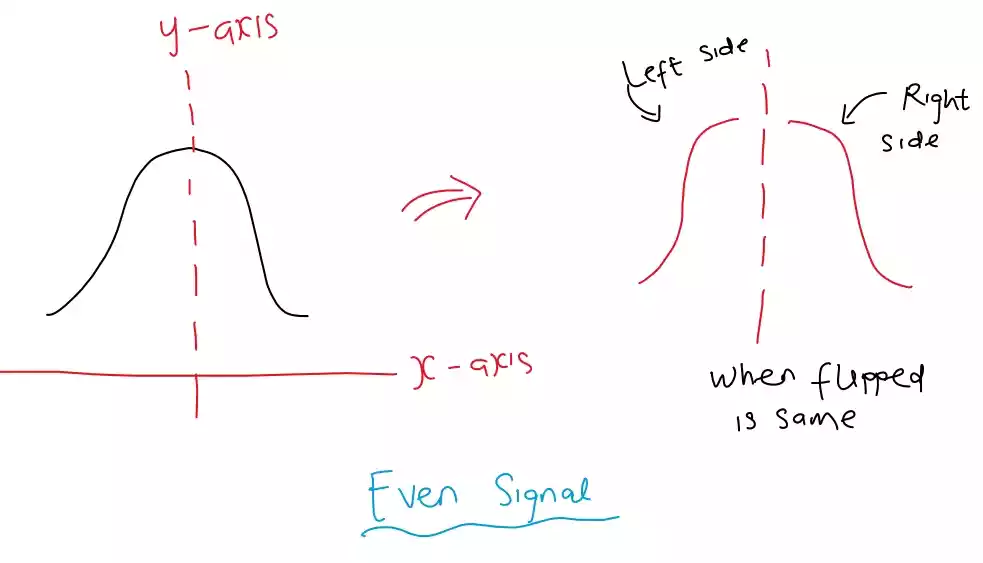 y-axis
x-axis
Left side
Right
side
when flipped
is same
Even Signal